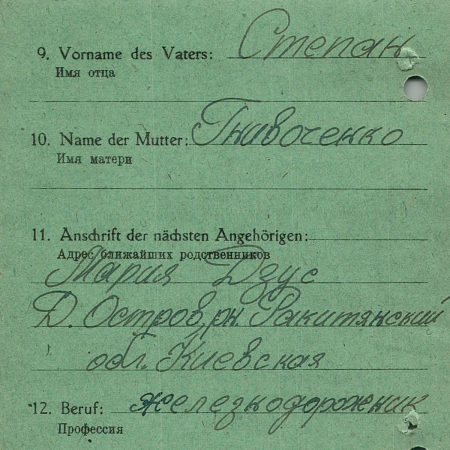 9. Vorname des Vaters: Степан
Имя отца
10. Name der Mutter: Гнивоченко
Имя матери
11. Anschrift der nächsten Angehörigen:
Адрес ближайших родственников
Мария Дзус
Д. Остров, рн. Ракитянский
обл. Киевская
12. Beruf: железнодорожник
Профессия